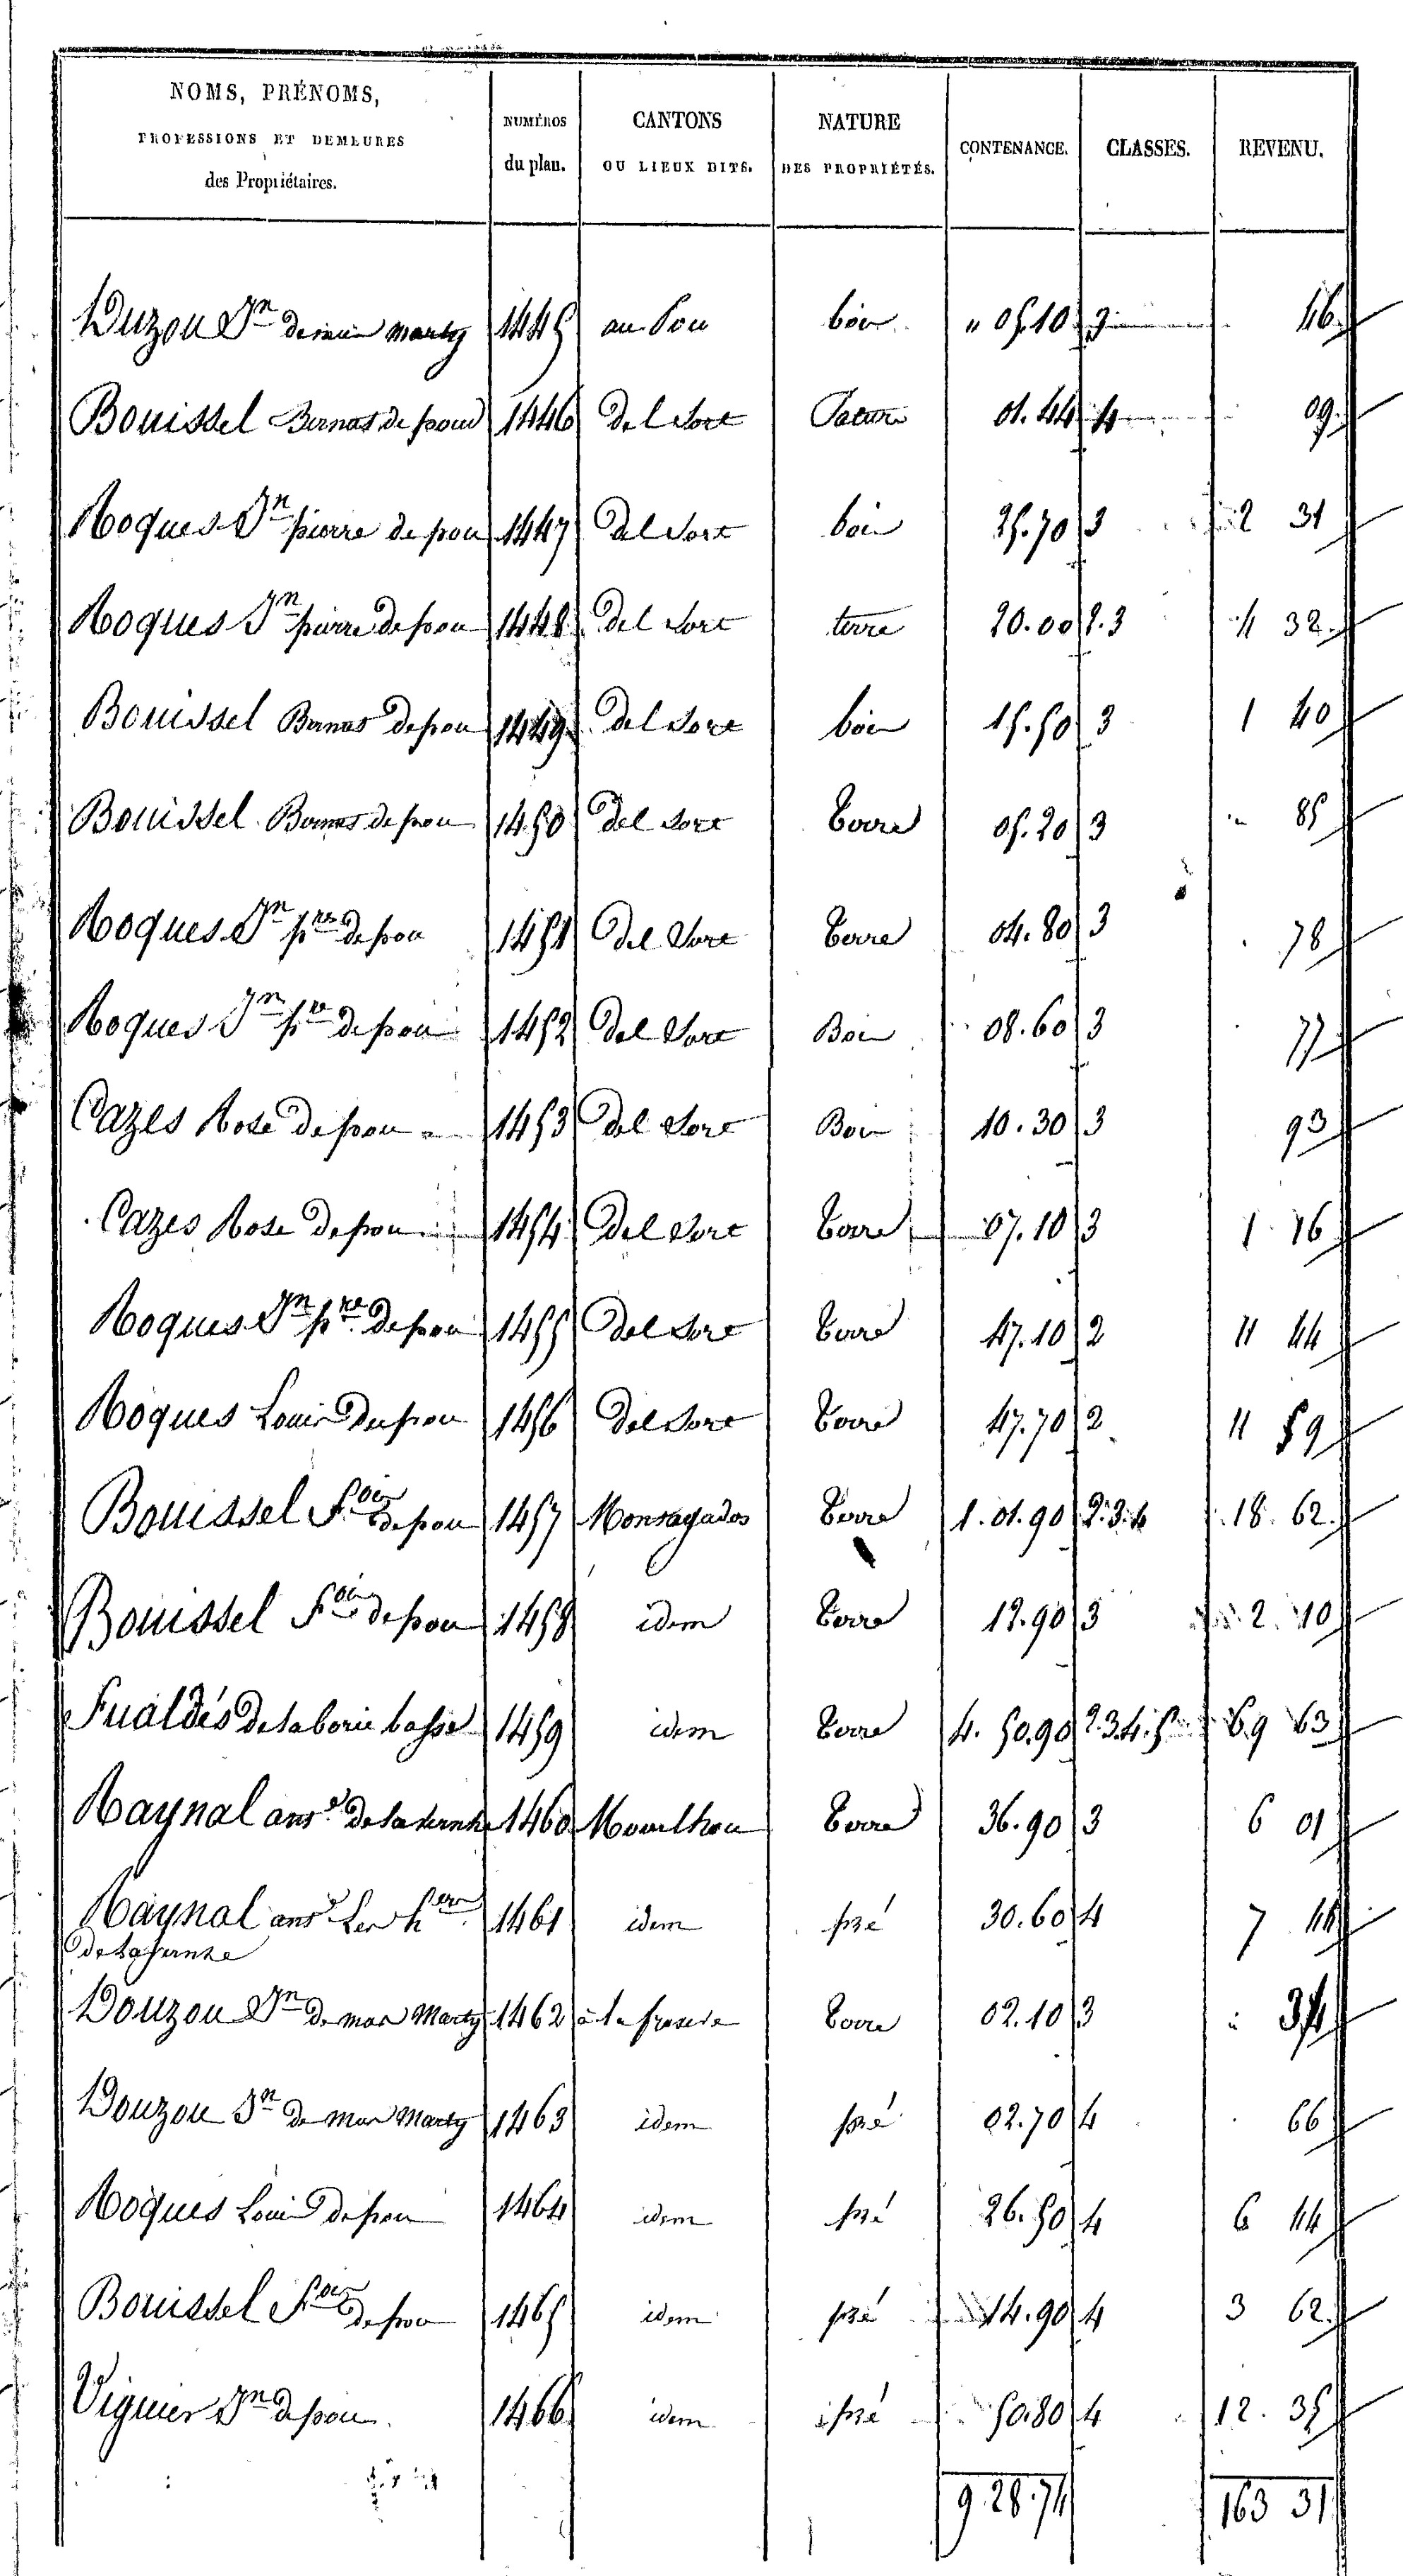 NOMS, PRÉNOMS,
PROFESSIONS ET DEMEURES
des Propriétaires.
NUMÉROS
du plan.
CANTONS
OU LIEUX DITS.
NATURE
DES PROPRIÉTÉS.
CONTENANCE.
CLASSES.
REVENU.
Douzou Jn de Marty 1445 au Pou bois " 05.10 3 46
Bouissel Bernas de pou 1446 del Sort Pature 01.44 4 09
Roques Jn pierre de pou 1447 del Sort bois 25.70 3 2 31
Roques Jn pierre de pou 1448 del Sort terre 20.00 2.3 4 32
Bouissel Bernas de pou 1449 del Sort bois 15.50 3 1 40
Bouissel Bernas de pou 1450 del Sort terre 05.20 3 " 85
Roques Jn pre de pou 1451 del Sort terre 04.80 3 78
Roques Jn pre de pou 1452 del Sort Bois 08.60 3 77
Cazes Rose de pou 1453 del Sort Bois 10.30 3 93
Cazes Rose de pou 1454 del Sort terre 07.10 3 1 16
Roques Jn pre de pou 1455 del Sort terre 47.10 2 11 44
Roques Louis de pou 1456 del Sort terre 47.70 2 11 59
Bouissel fois de pou 1457 Monsagados terre 1.01.90 2.3.4 18.62
Bouissel fois de pou 1458 idem terre 12.90 3 2.10
Fualdés de la borie basse 1459 idem terre 4.50.90 2.3.4.5 69 63
Raynal ans 1460 terre 36.90 3 6 01
Raynal ans Les hers 1461 idem pré 30.60 4 7 44
Douzou Jn de mas Marty 1462 à la terre 02.10 3 34
Douzou Jn de mas Marty 1463 idem pré 02.70 4 66
Roques Louis de pou 1464 idem pré 26.50 4 6 44
Bouissel fois de pou 1465 idem pré 14.90 4 3 62
Viguier Jn de pou 1466 idem pré 50.80 4 12.35
9.28.74 163 31